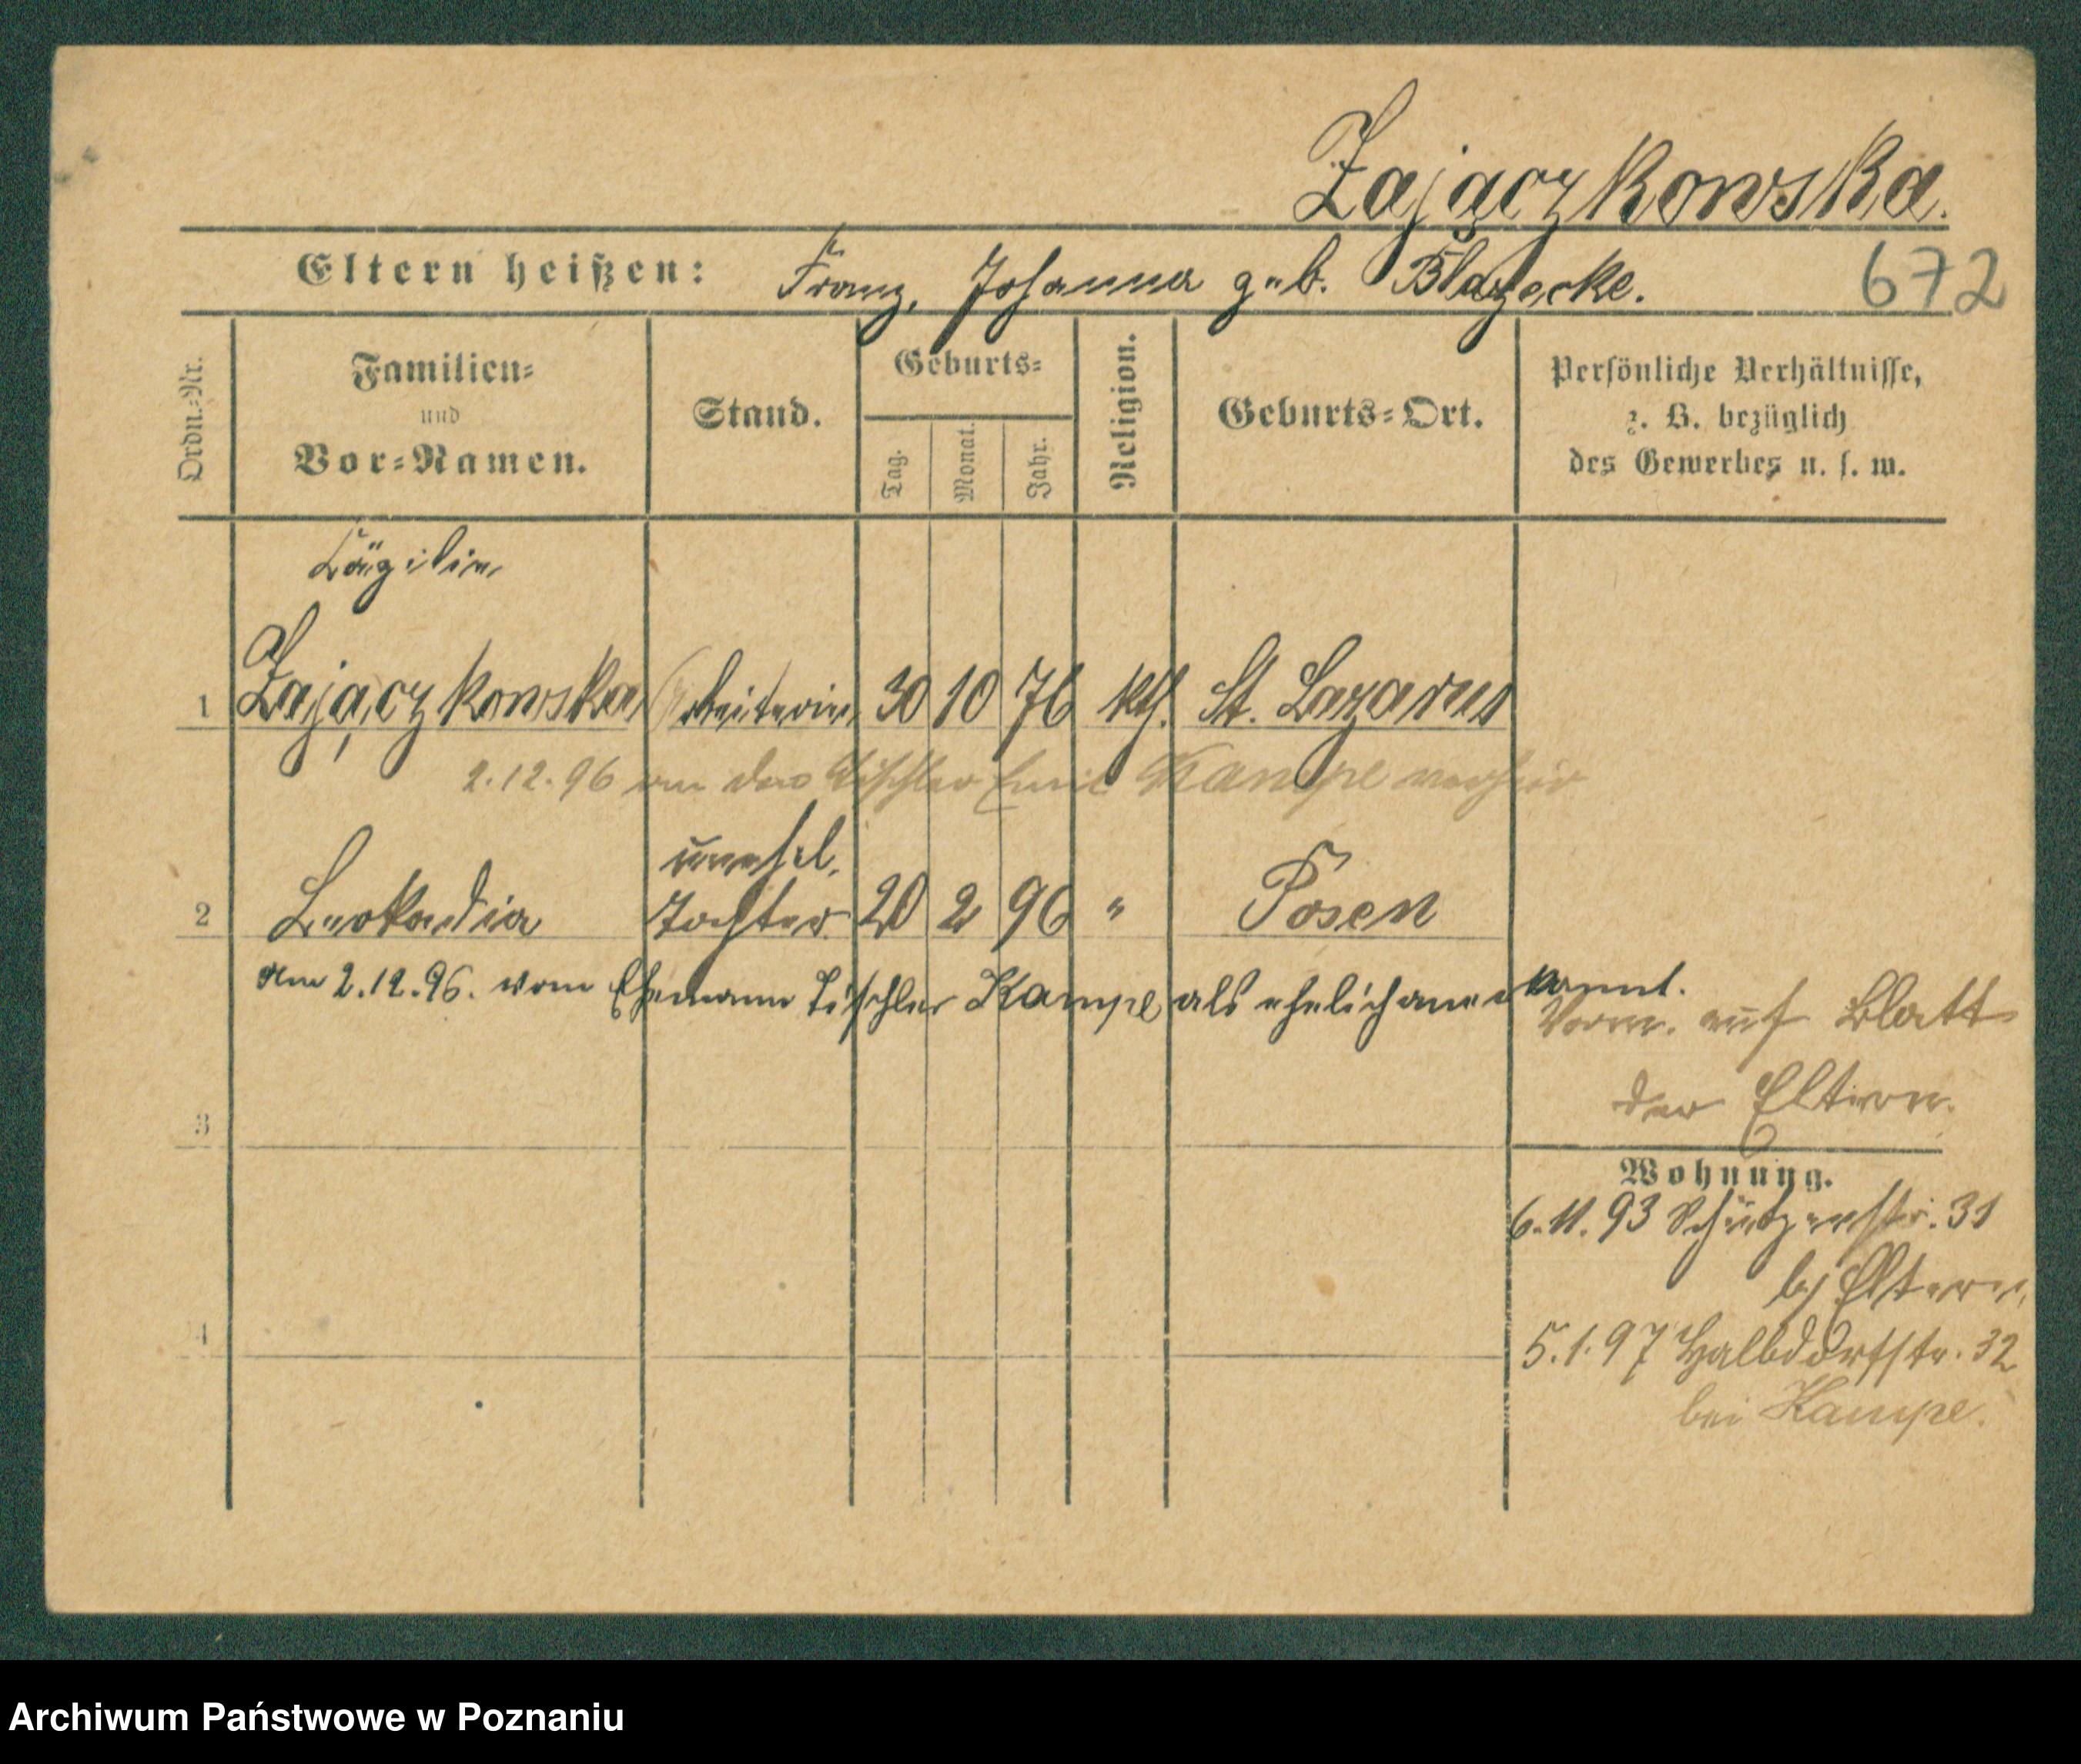 Zajączkowska.
Eltern heißen: Franz, Johanna geb. Blazecke. 672
Ordn.-Nr. Familien- und Vor-Namen. Stand. Geburts- Tag. Monat. Jahr. Religion. Geburts-Ort. Persönliche Verhältnisse, z. B. bezüglich des Gewerbes u. s. w.
Cäzilie
1 Zajączkowska Arbeiterin 30 10 76 kth. St. Lazarus
2.12.96 an den Tischler Emil Kampe verheir
unehel.
2 Leokadia Tochter 20 2 96 " Posen
Am 2.12.96. vom Ehemann Tischler Kampe als ehelich anerkannt.
Verm. auf Blatt
der Eltern.
3
Wohnung.
6.11.93 Schützenstr. 31
bj Eltern
4
5.1.97 Halbdorfstr. 32
bei Kampe.
Archiwum Państwowe w Poznaniu